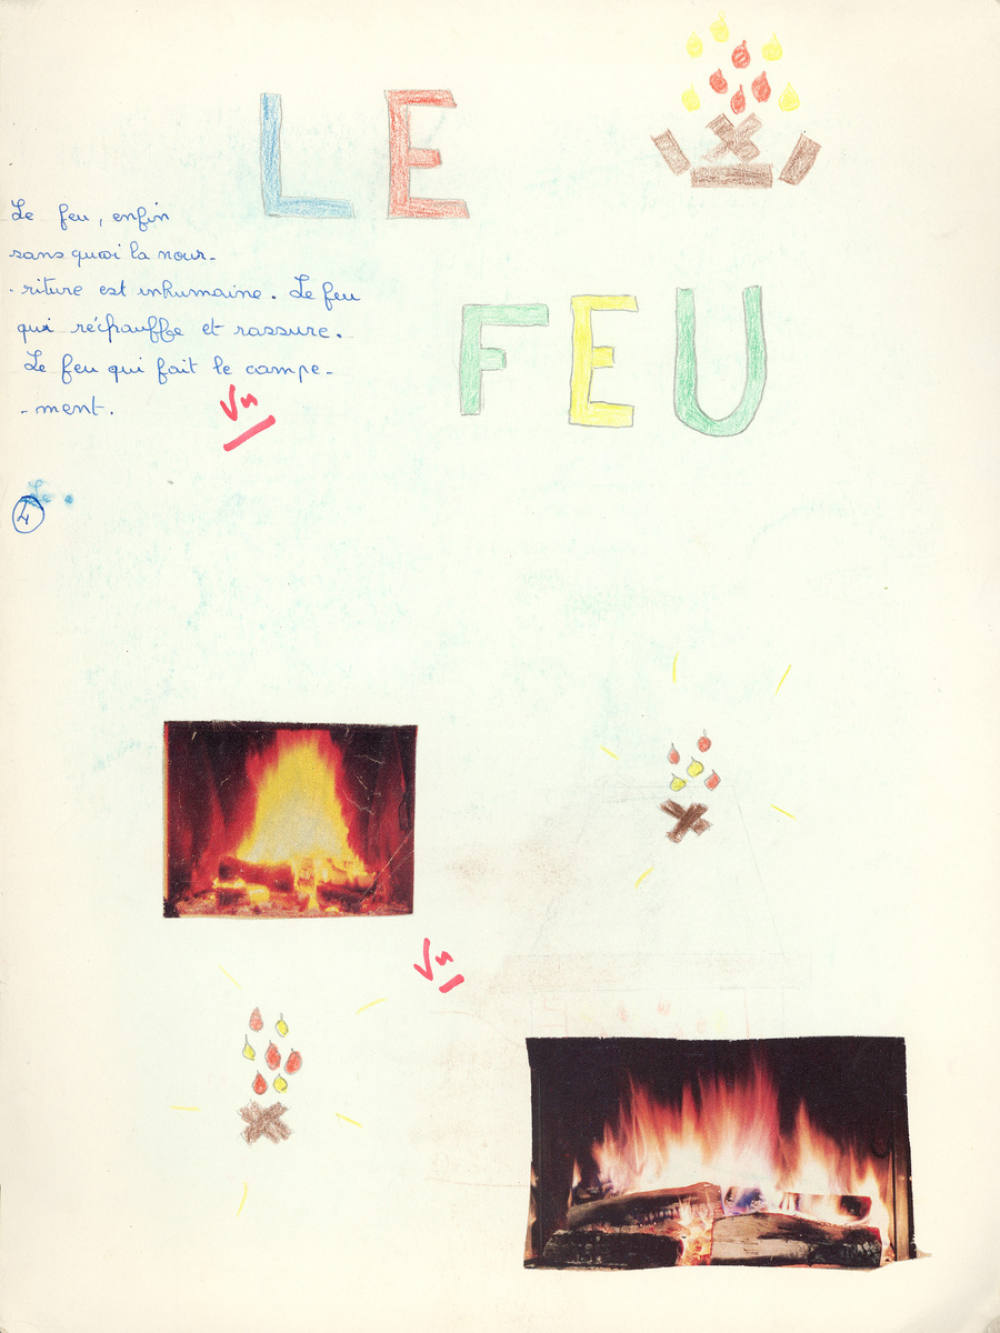 LE
FEU
Le feu, enfin
sans quoi la nour-
-riture est inhumaine. Le feu
qui réchauffe et rassure.
Le feu qui fait le campe-
-ment.
Vu
Le
4
Vu